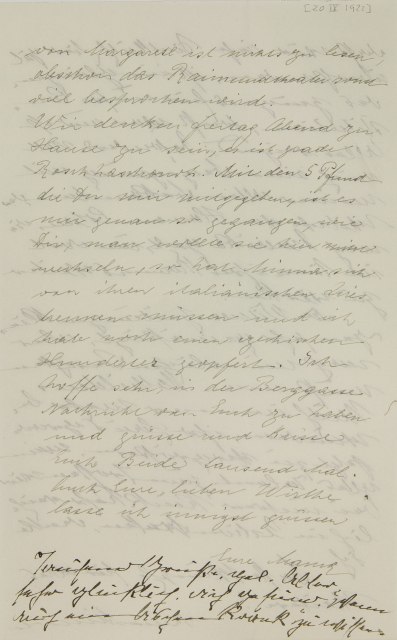 [20 IX 1922]
von Margaretl ist nichts zu lesen,
obschon das Raimundtheater sonst
viel besprochen wird.
Wir denken Freitag Abend zu
Hause zu sein, es ist grade
Rosch haschonoh. Mit den 5 Pfund
die Du mir mitgegeben, ist es
mir genau so gegangen wie
Dir, man wollte sie hier nicht
wechseln, so hat Minna sich
von ihren italiänischen Lires
trennen müssen und ich
habe noch einen tschechischen
Hunderter geopfert. Ich
hoffe sehr, in der Berggasse
Nachricht von Euch zu haben
und grüsse und küsse
Euch Beide tausend Mal.
Auch Eure lieben Wirthe
lasse ich innigst grüssen
Eure Mama